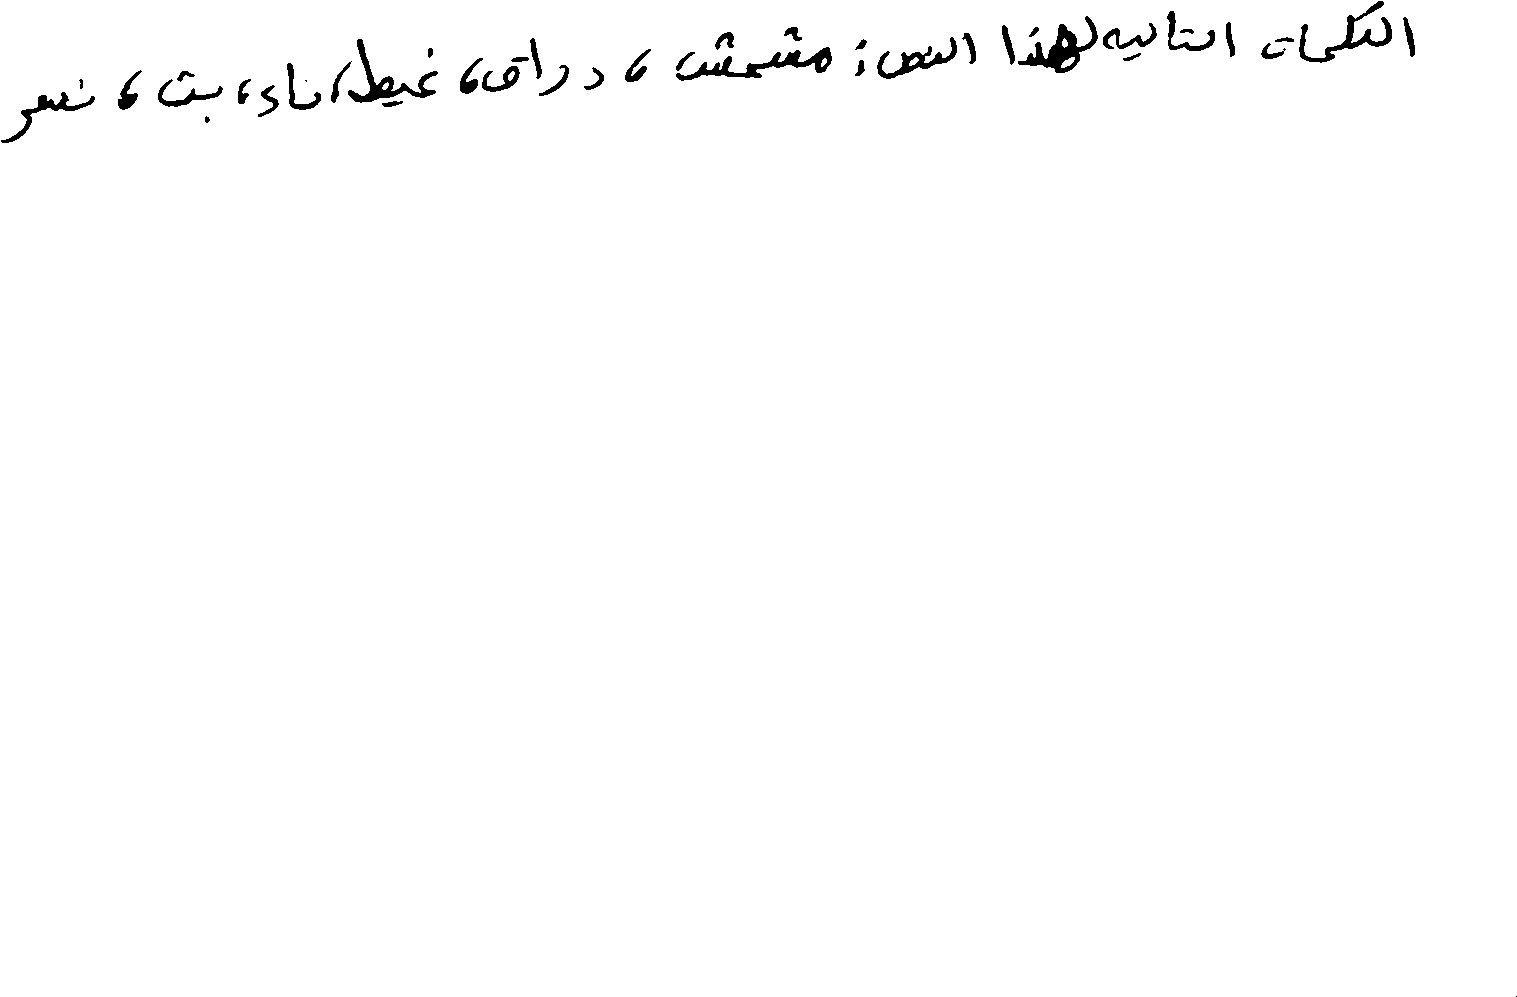 الكلمات التاليه لهذا النص: مشمش، دراق، غيط، ناء، بت، نسر